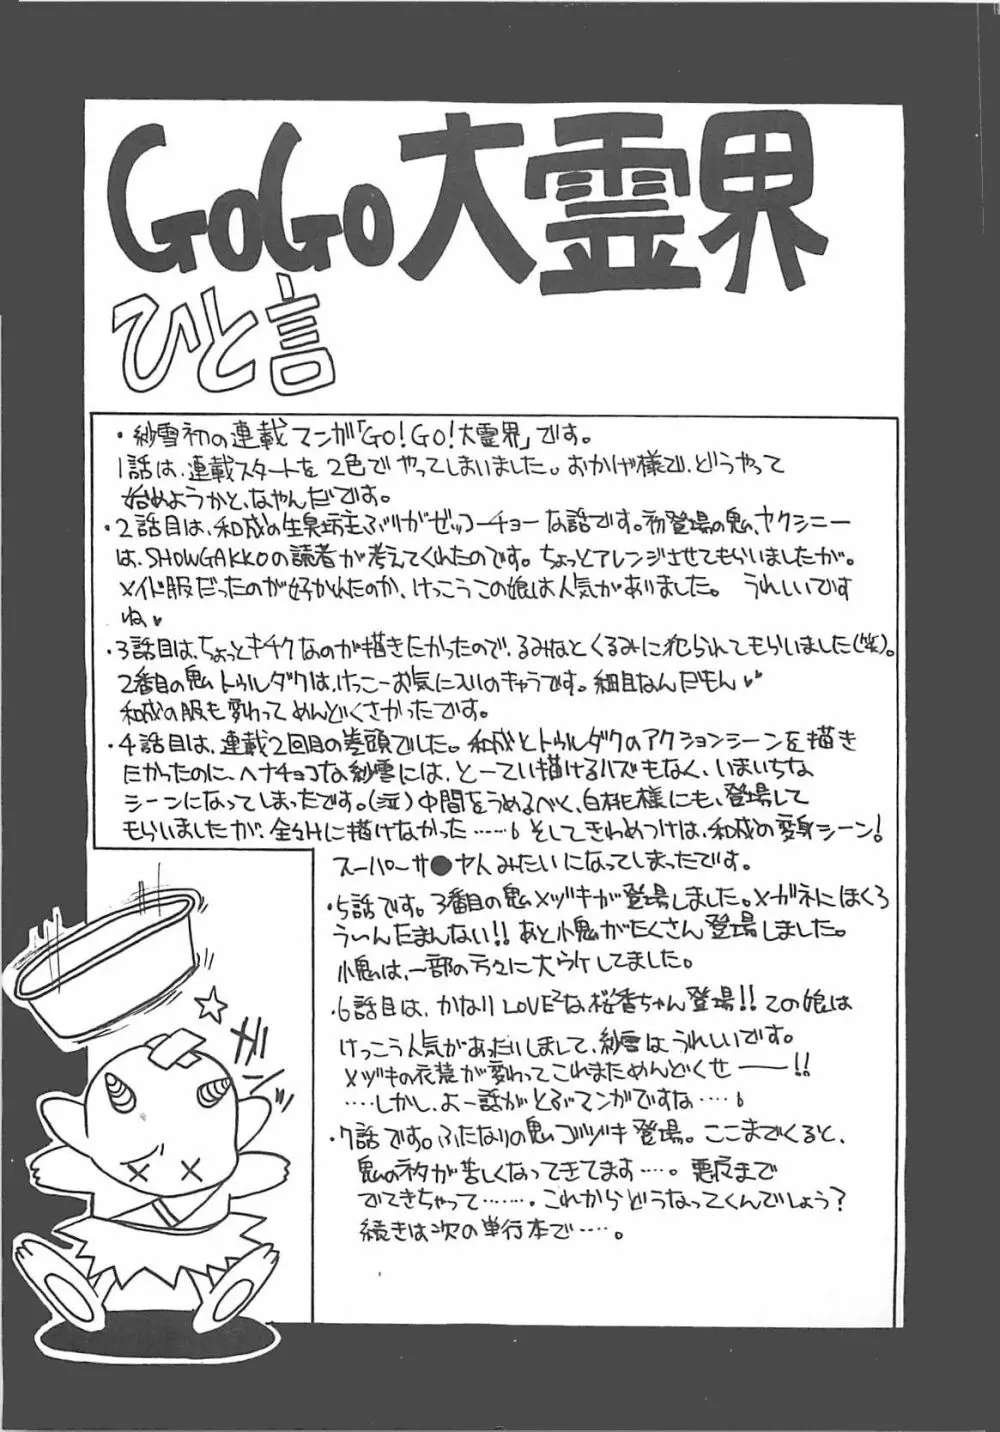 GoGo大霊界
ひと言
・紗雪初の連載マンガ「GO!GO!大霊界」です。
1話は、連載スタートを2色でやってしまいました。おかげ様で、どうやって
始めようかと、なやんだです。
・2話目は、和成の生臭坊主ぶりがゼッコーチョーな話です。初登場の鬼、ヤクシニー
は、SHOWGAKKOの読者が考えてくれたのです。ちょっとアレンジさせてもらいましたが。
メイド服だったのが好かれたのか、けっこうこの娘は人気がありました。 うれしいです
ね♥
・3話目は、ちょっとキチクなのが描きたかったので、るみなとくるみに犯られてもらいました(笑)。
2番目の鬼トゥルダクは、けっこーお気に入りのキャラです。細目なんだもん♥♥
和成の服も変わってめんどくさかったです。
・4話目は、連載2回目の巻頭でした。和成とトゥルダクのアクションシーンを描き
たかったのに、ヘナチョコな紗雪には、とーてい描けるハズもなく、いまいちな
シーンになってしまったです。(泣)中間をうめるべく、白桃様にも、登場して
もらいましたが、全々Hに描けなかった……。そしてきわめつけは、和成の変身シーン!
スーパーサ●ヤ人みたいになってしまったです。
・5話です。3番目の鬼メヅキが登場しました。メガネにほくろ
うぃんたまんない!!あと小鬼がたくさん登場しました。
小鬼は、一部の方々に大ウケしてました。
・6話目は、かなりLOVE²な、桜香ちゃん登場!!この娘は
けっこう人気があったりしまして、紗雪はうれしいです。
メヅキの衣装が変わってこれまためんどくせ――!!
……しかし、よー話がとぶマンガですな……。
・7話です。ふたなりの鬼ゴヅキ登場。ここまでくると、
鬼のネタが苦しくなってきてます…。悪灰まで
でてきちゃって……。これからどうなってくんでしょう?
続きは次の単行本で……。